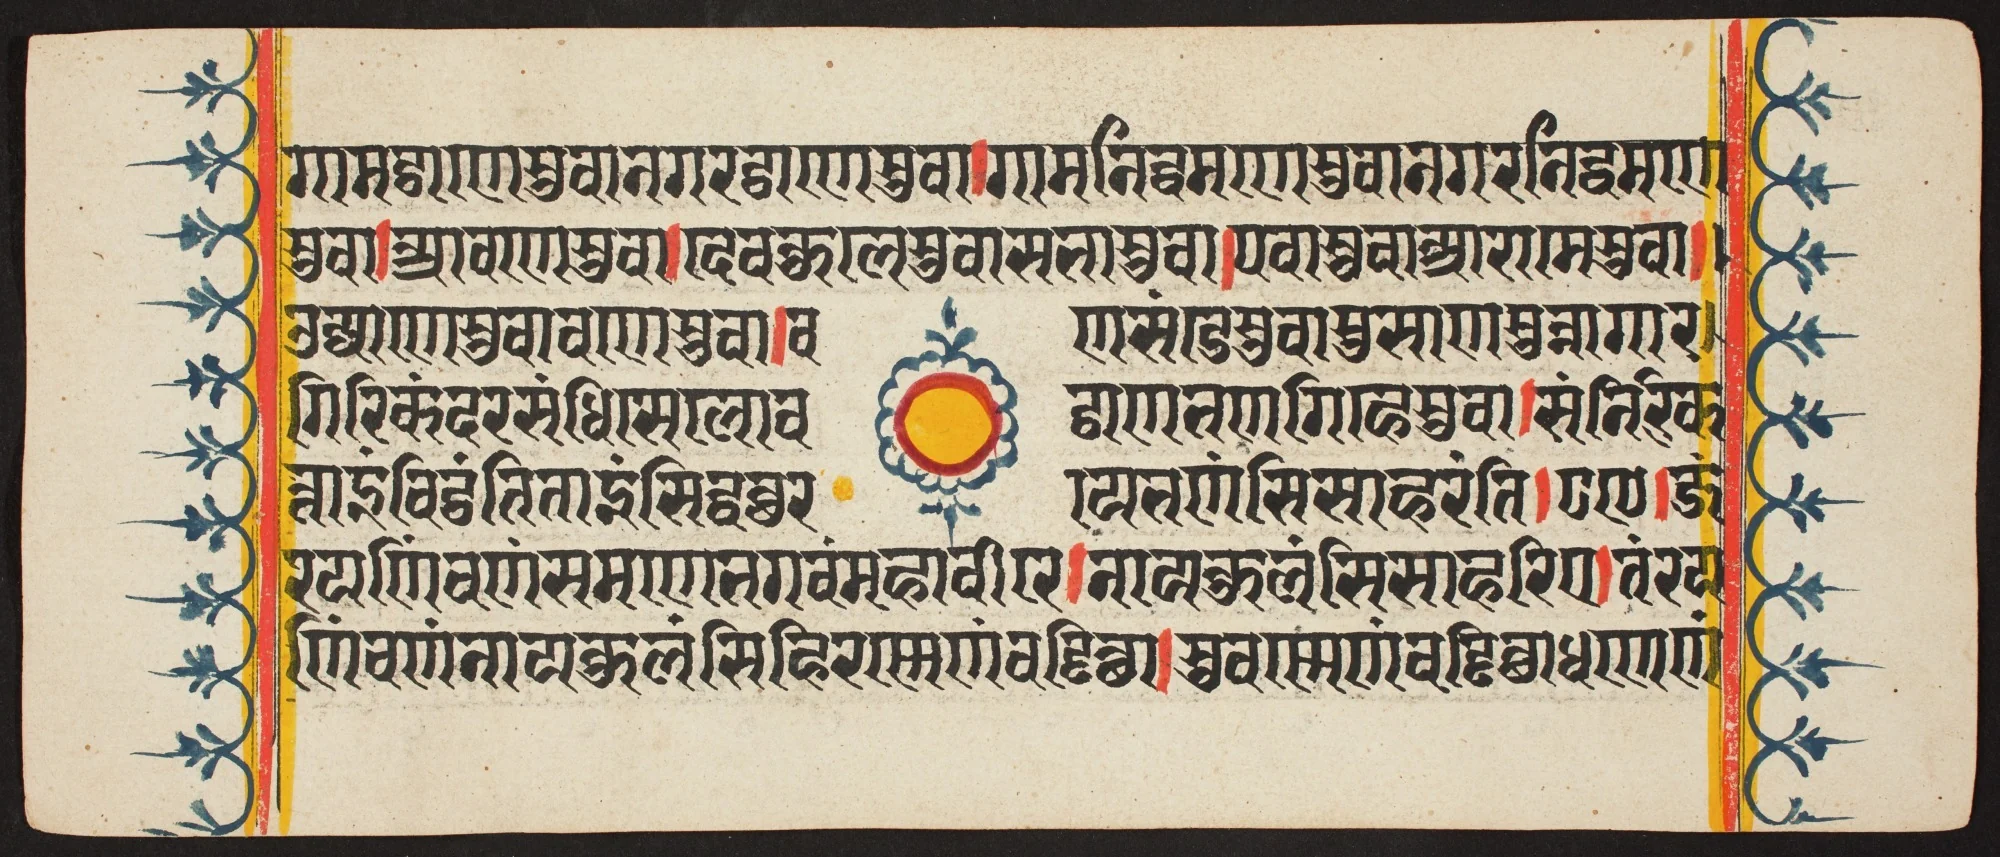 गामट्ठाणेसुवानगरट्ठाणेसुवा।गामनिद्धमणेसुवानगरनिद्धमणे
सुवा।आवणेसुवा।देवकुलेसुवासभासुवा।पवासुवाआरामेसुवा।
उज्जाणेसुवावणेसुवा।व णसंडेसुवासुसाणसुन्नागार
गिरिकंदरसंधिसेलोव ट्ठाणभणगिहेसुवा।संनिरिक
त्ताइंचिट्ठंतिताइंसिद्धत्थर ायभणंसिसाहरंति।८ए।जं
रयणिंचणंसमणेभगवंमहावीरे।नायकुलंसिसाहरिए।तंरय
णिंचणंनायकुलंसिहिरण्णेणंवड्ढित्था।सुवण्णेणंवड्ढित्थाधणेणं